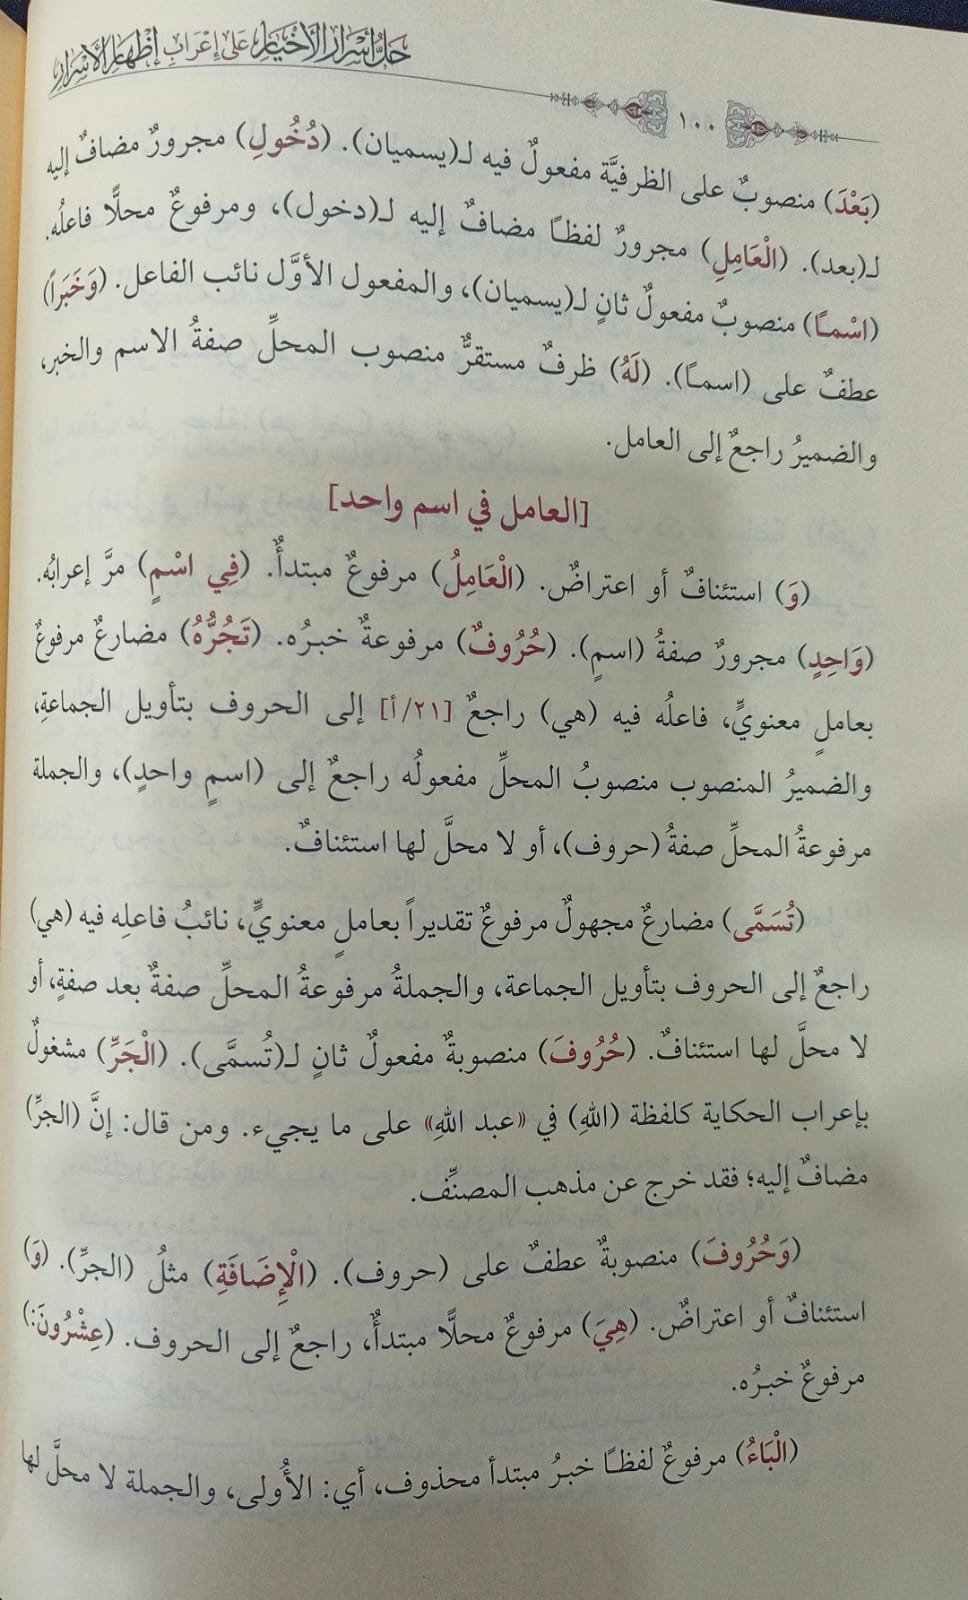 حَلُّ أَسْرَارِ الْأَخْيَارِ عَلَى إِعْرَابِ إِظْهَارِ الْأَسْرَارِ
١٠٠
(بَعْدَ) منصوبٌ على الظرفيَّة مفعولٌ فيه لـ(يسميان). (دُخُولِ) مجرورٌ مضافٌ إليه
لـ(بعد). (الْعَامِلِ) مجرورٌ لفظًا مضافٌ إليه لـ(دخول)، ومرفوعٌ محلًّا فاعلُه.
(اسْمـًا) منصوبٌ مفعولٌ ثانٍ لـ(يسميان)، والمفعول الأوَّل نائب الفاعل. (وَخَبَراً)
عطفٌ على (اسمـًا). (لَهُ) ظرفٌ مستقرٌّ منصوب المحلِّ صفةُ الاسم والخبر،
والضميرُ راجعٌ إلى العامل.
[العامل في اسم واحد]
(وَ) استئنافٌ أو اعتراضٌ. (الْعَامِلُ) مرفوعٌ مبتدأٌ. (فِي اسْمٍ) مرَّ إعرابُه.
(وَاحِدٍ) مجرورٌ صفةُ (اسمٍ). (حُرُوفٌ) مرفوعةٌ خبرُه. (تَجُرُّهُ) مضارعٌ مرفوعٌ
بعاملٍ معنويٍّ، فاعلُه فيه (هي) راجعٌ [٢١/أ] إلى الحروف بتأويل الجماعةِ،
والضميرُ المنصوب منصوبُ المحلِّ مفعولُه راجعٌ إلى (اسمٍ واحدٍ)، والجملة
مرفوعةُ المحلِّ صفةُ (حروف)، أو لا محلَّ لها استئنافٌ.
(تُسَمَّى) مضارعٌ مجهولٌ مرفوعٌ تقديراً بعاملٍ معنويٍّ، نائبُ فاعلِه فيه (هي)
راجعٌ إلى الحروف بتأويل الجماعة، والجملةُ مرفوعةُ المحلِّ صفةٌ بعد صفةٍ، أو
لا محلَّ لها استئنافٌ. (حُرُوفَ) منصوبةٌ مفعولٌ ثانٍ لـ(تُسمَّى). (الْجَرِّ) مشغولٌ
بإعراب الحكاية كلفظة (اللهِ) في «عبد اللهِ» على ما يجيء. ومن قال: إنَّ (الجرِّ)
مضافٌ إليه؛ فقد خرج عن مذهب المصنِّف.
(وَحُرُوفَ) منصوبةٌ عطفٌ على (حروف). (الْإِضَافَةِ) مثلُ (الجرِّ). (وَ)
استئنافٌ أو اعتراضٌ. (هِيَ) مرفوعٌ محلًّا مبتدأٌ، راجعٌ إلى الحروف. (عِشْرُونَ:)
مرفوعٌ خبرُه.
(الْبَاءُ) مرفوعٌ لفظـًا خبرُ مبتدأ محذوف، أي: الأُولى، والجملة لا محلَّ لها